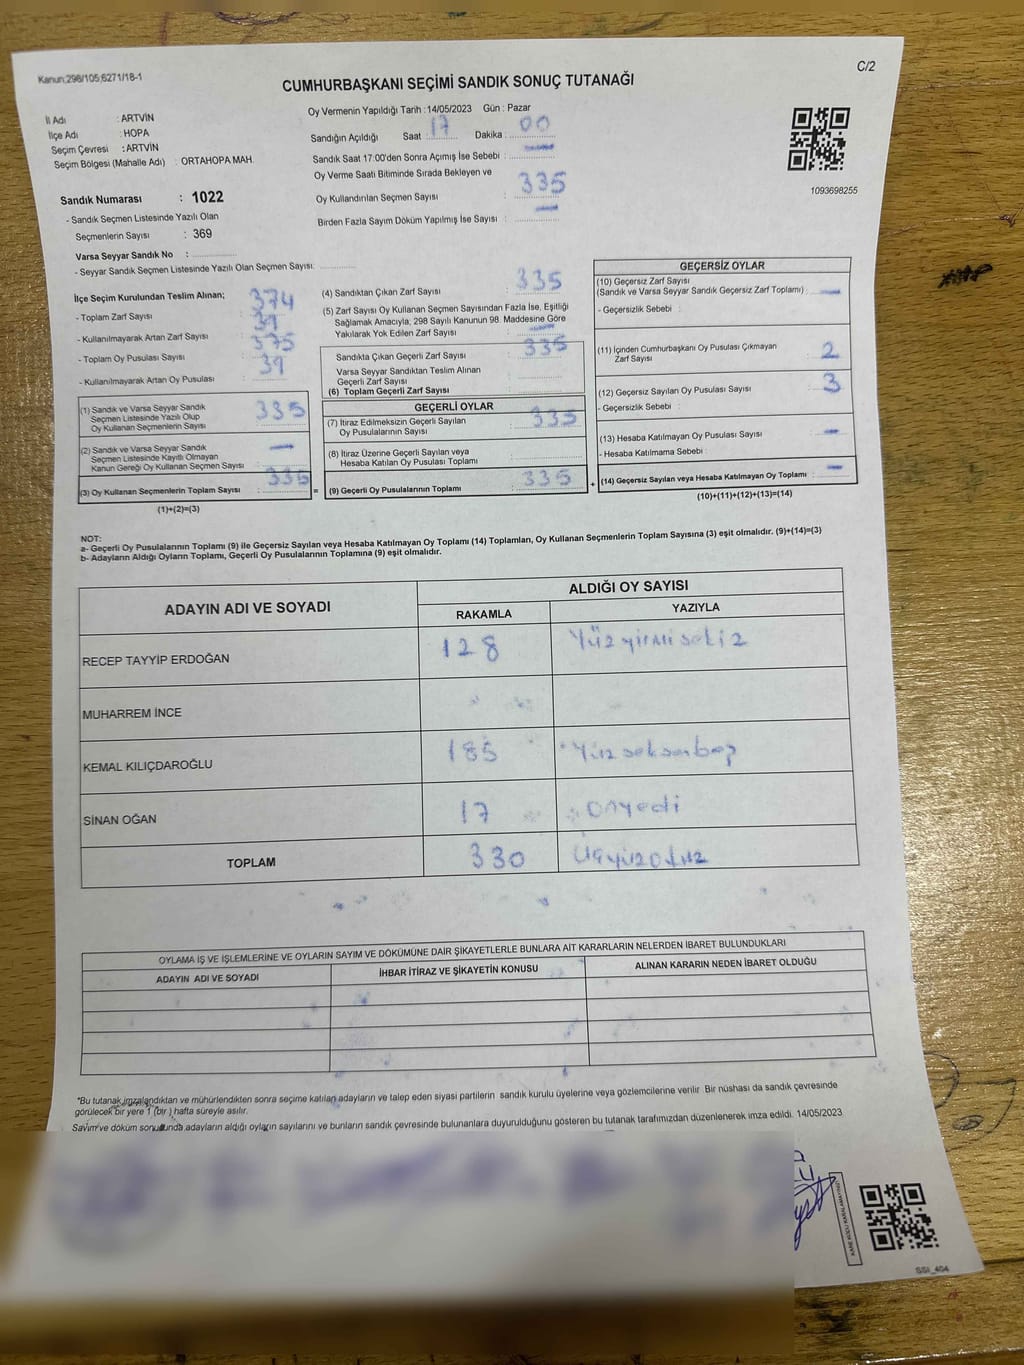 Kanun;298/105;6271/18-1
C/2
CUMHURBAŞKANI SEÇİMİ SANDIK SONUÇ TUTANAĞI
İl Adı : ARTVİN
İlçe Adı : HOPA
Seçim Çevresi : ARTVİN
Seçim Bölgesi (Mahalle Adı) : ORTAHOPA MAH.
Sandık Numarası : 1022
- Sandık Seçmen Listesinde Yazılı Olan
Seçmenlerin Sayısı : 369
Varsa Seyyar Sandık No :
- Seyyar Sandık Seçmen Listesinde Yazılı Olan Seçmen Sayısı:
Oy Vermenin Yapıldığı Tarih : 14/05/2023 Gün : Pazar
Sandığın Açıldığı Saat : 17 Dakika : 00
Sandık Saat 17:00'den Sonra Açımış İse Sebebi : —
Oy Verme Saati Bitiminde Sırada Bekleyen ve
Oy Kullandırılan Seçmen Sayısı : 335
Birden Fazla Sayım Döküm Yapılmış İse Sayısı : —
1093698255
İlçe Seçim Kurulundan Teslim Alınan;
- Toplam Zarf Sayısı : 374
- Kullanılmayarak Artan Zarf Sayısı : 39
- Toplam Oy Pusulası Sayısı : 375
- Kullanılmayarak Artan Oy Pusulası : 39
(1) Sandık ve Varsa Seyyar Sandık
Seçmen Listesinde Yazılı Olup
Oy Kullanan Seçmenlerin Sayısı : 335
(2) Sandık ve Varsa Seyyar Sandık
Seçmen Listesinde Kayıtlı Olmayan
Kanun Gereği Oy Kullanan Seçmen Sayısı : —
(3) Oy Kullanan Seçmenlerin Toplam Sayısı : 335
(1)+(2)=(3)
=
(4) Sandıktan Çıkan Zarf Sayısı : 335
(5) Zarf Sayısı Oy Kullanan Seçmen Sayısından Fazla İse, Eşitliği
Sağlamak Amacıyla, 298 Sayılı Kanunun 98. Maddesine Göre
Yakılarak Yok Edilen Zarf Sayısı : —
Sandıkta Çıkan Geçerli Zarf Sayısı : 335
Varsa Seyyar Sandıktan Teslim Alınan
Geçerli Zarf Sayısı :
(6) Toplam Geçerli Zarf Sayısı :
GEÇERLİ OYLAR
(7) İtiraz Edilmeksizin Geçerli Sayılan
Oy Pusulalarının Sayısı : 335
(8) İtiraz Üzerine Geçerli Sayılan veya
Hesaba Katılan Oy Pusulası Toplamı :
(9) Geçerli Oy Pusulalarının Toplamı : 335
+
GEÇERSİZ OYLAR
(10) Geçersiz Zarf Sayısı
(Sandık ve Varsa Seyyar Sandık Geçersiz Zarf Toplamı) : —
- Geçersizlik Sebebi :
(11) İçinden Cumhurbaşkanı Oy Pusulası Çıkmayan
Zarf Sayısı : 2
(12) Geçersiz Sayılan Oy Pusulası Sayısı : 3
- Geçersizlik Sebebi :
(13) Hesaba Katılmayan Oy Pusulası Sayısı : —
- Hesaba Katılmama Sebebi :
(14) Geçersiz Sayılan veya Hesaba Katılmayan Oy Toplamı : —
(10)+(11)+(12)+(13)=(14)
NOT:
a- Geçerli Oy Pusulalarının Toplamı (9) ile Geçersiz Sayılan veya Hesaba Katılmayan Oy Toplamı (14) Toplamları, Oy Kullanan Seçmenlerin Toplam Sayısına (3) eşit olmalıdır. (9)+(14)=(3)
b- Adayların Aldığı Oyların Toplamı, Geçerli Oy Pusulalarının Toplamına (9) eşit olmalıdır.
ADAYIN ADI VE SOYADI ALDIĞI OY SAYISI
RAKAMLA YAZIYLA
RECEP TAYYİP ERDOĞAN 128 Yüz yirmi sekiz
MUHARREM İNCE
KEMAL KILIÇDAROĞLU 185 Yüz seksen beş
SİNAN OĞAN 17 Onyedi
TOPLAM 330 Üçyüzotuz
OYLAMA İŞ VE İŞLEMLERİNE VE OYLARIN SAYIM VE DÖKÜMÜNE DAİR ŞİKAYETLERLE BUNLARA AİT KARARLARIN NELERDEN İBARET BULUNDUKLARI
ADAYIN ADI VE SOYADI İHBAR İTİRAZ VE ŞİKAYETİN KONUSU ALINAN KARARIN NEDEN İBARET OLDUĞU
*Bu tutanak imzalandıktan ve mühürlendikten sonra seçime katılan adayların ve talep eden siyasi partilerin sandık kurulu üyelerine veya gözlemcilerine verilir. Bir nüshası da sandık çevresinde
görülecek bir yere 1 (bir) hafta süreyle asılır.
Sayım ve döküm sonucunda adayların aldığı oyların sayılarını ve bunların sandık çevresinde bulunanlara duyurulduğunu gösteren bu tutanak tarafımızdan düzenlenerek imza edildi. 14/05/2023
KARE KODU KARALAMAYINIZ
SSI_404